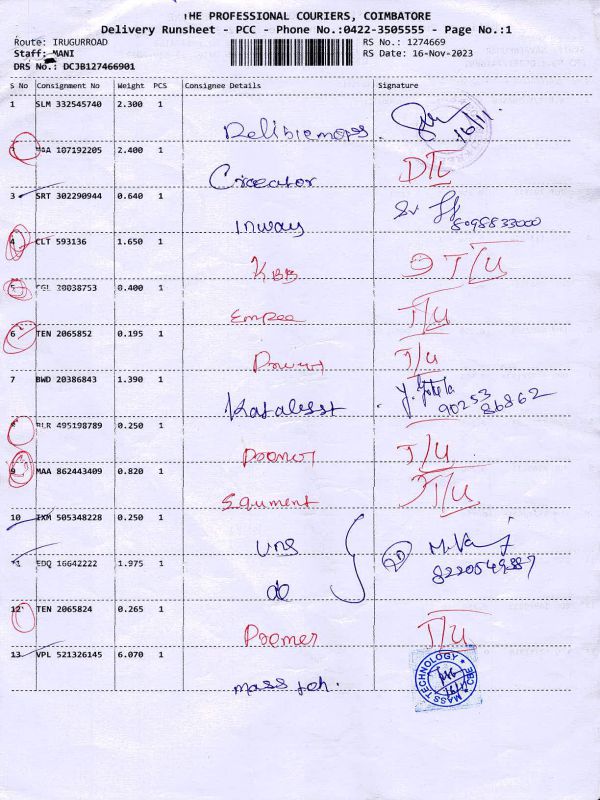 THE PROFESSIONAL COURIERS, COIMBATORE
Delivery Runsheet - PCC - Phone No.:0422-3505555 - Page No.:1
Route: IRUGURROAD RS No.: 1274669
Staff: MANI RS Date: 16-Nov-2023
DRS No.: DC3B127466901
S No Consignment No Weight PCS Consignee Details Signature
1 SLM 332545740 2.300 1
16/11
MAA 107192205 2.400 1
D/L
3 SRT 302290944 0.640 1
8098833000
Inway
4 CLT 593136 1.650 1
KBB T/U
5 CGL 20038753 0.400 1
Empee T/U
6 TEN 2065852 0.195 1
T/U
7 BWD 20386843 1.390 1
90253
86862
8 BLR 495198789 0.250 1
T/U
9 MAA 862443409 0.820 1
Equment T/U
10 IXM 505348228 0.250 1
uns
11 EDQ 16642222 1.975 1
do
12 TEN 2065824 0.265 1
Poemer T/U
13 VPL 521326145 6.070 1
MASS TECHNOLOGY CBE
mass teh.